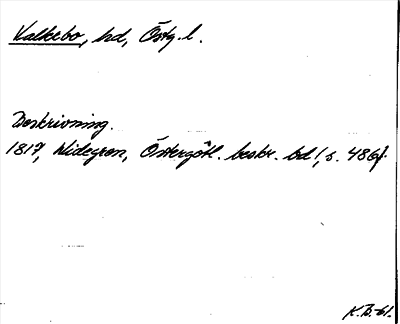 Valkebo, hd, Östg. l.
Beskrivning.
1817, Widegren, Östergötl. beskr. bd 1, s. 486f.
K.B.-61.